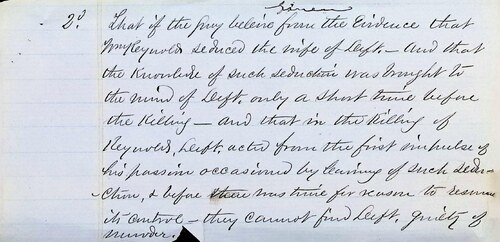 Given
2d That if the jury beleive from the Evidence that
Wm Reynolds seduced the wife of Deft. - and that
the Knowledge of such seduction was brought to
the mind of Deft. only a short time before
the Killing - and that in the Killing of
Reynolds, Deft. acted from the first impulse of
his passion occasioned by learning of such seduc-
-tion, & before there was time for reason to resume
its control - they cannot find Deft. guilty of
murder.